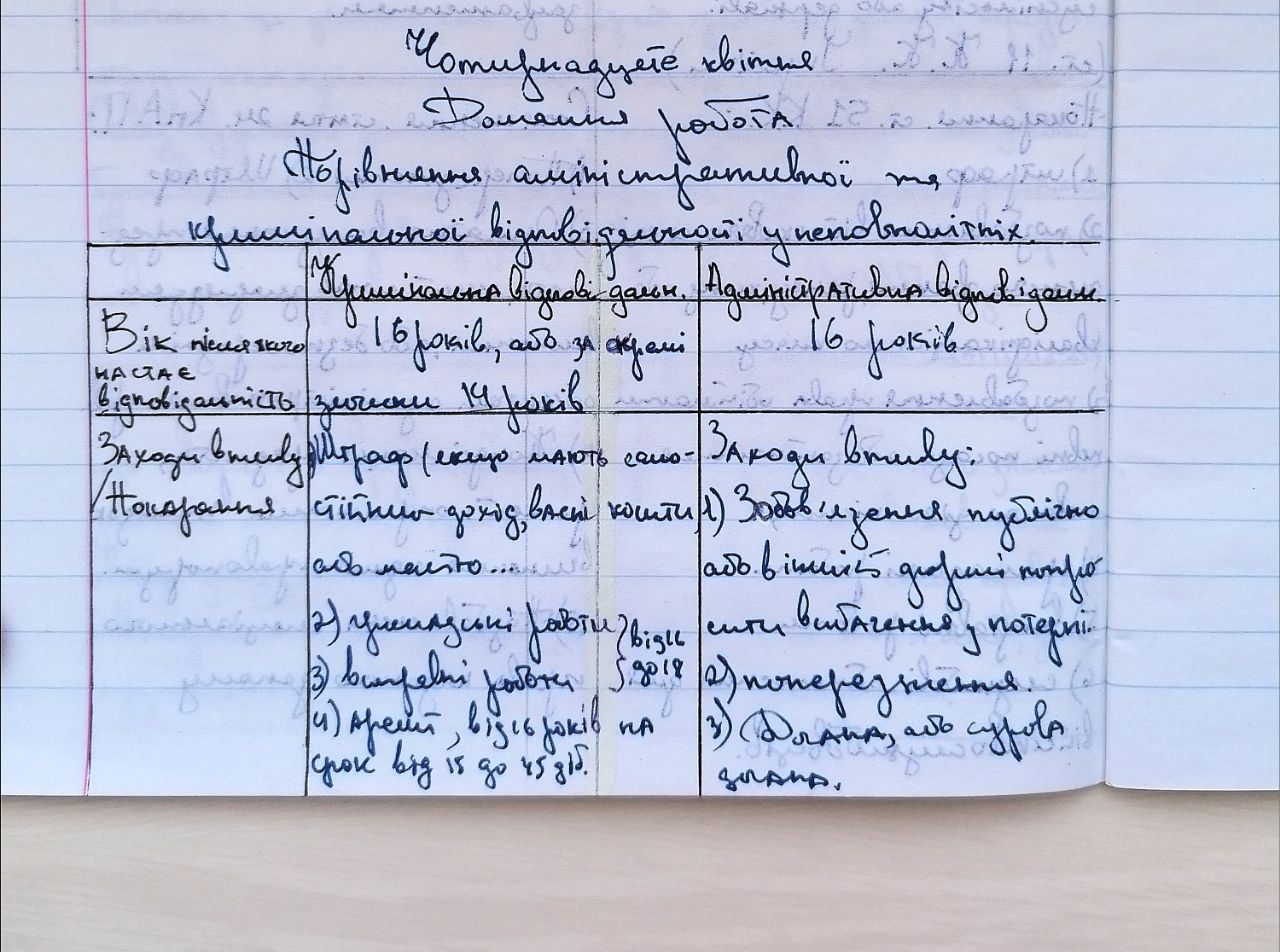 Чотирнадцяте квітня
Домашня робота
Порівняння аміністративної та
кримінальної відповідальності у неповнолітніх.
Кримінальна відповідальн. Адміністративна відповідальн.
Вік після якого настає відповідальність
16 років, або за окремі
злочини 14 років
16 років
Заходи впливу
/Покарання
1) Штраф (якщо мають само-
стійний доход, власні кошти
або майно...
2) громадські роботи
3) виправні роботи
від 16
до 18
4) арешт, від 16 років на
срок від 15 до 45 діб.
Заходи впливу:
1) Зобов'язення публічно
або в іншій формі попро-
сити вибачення у потерпі.
2) попередження.
3) Догана, або сурова
догана.